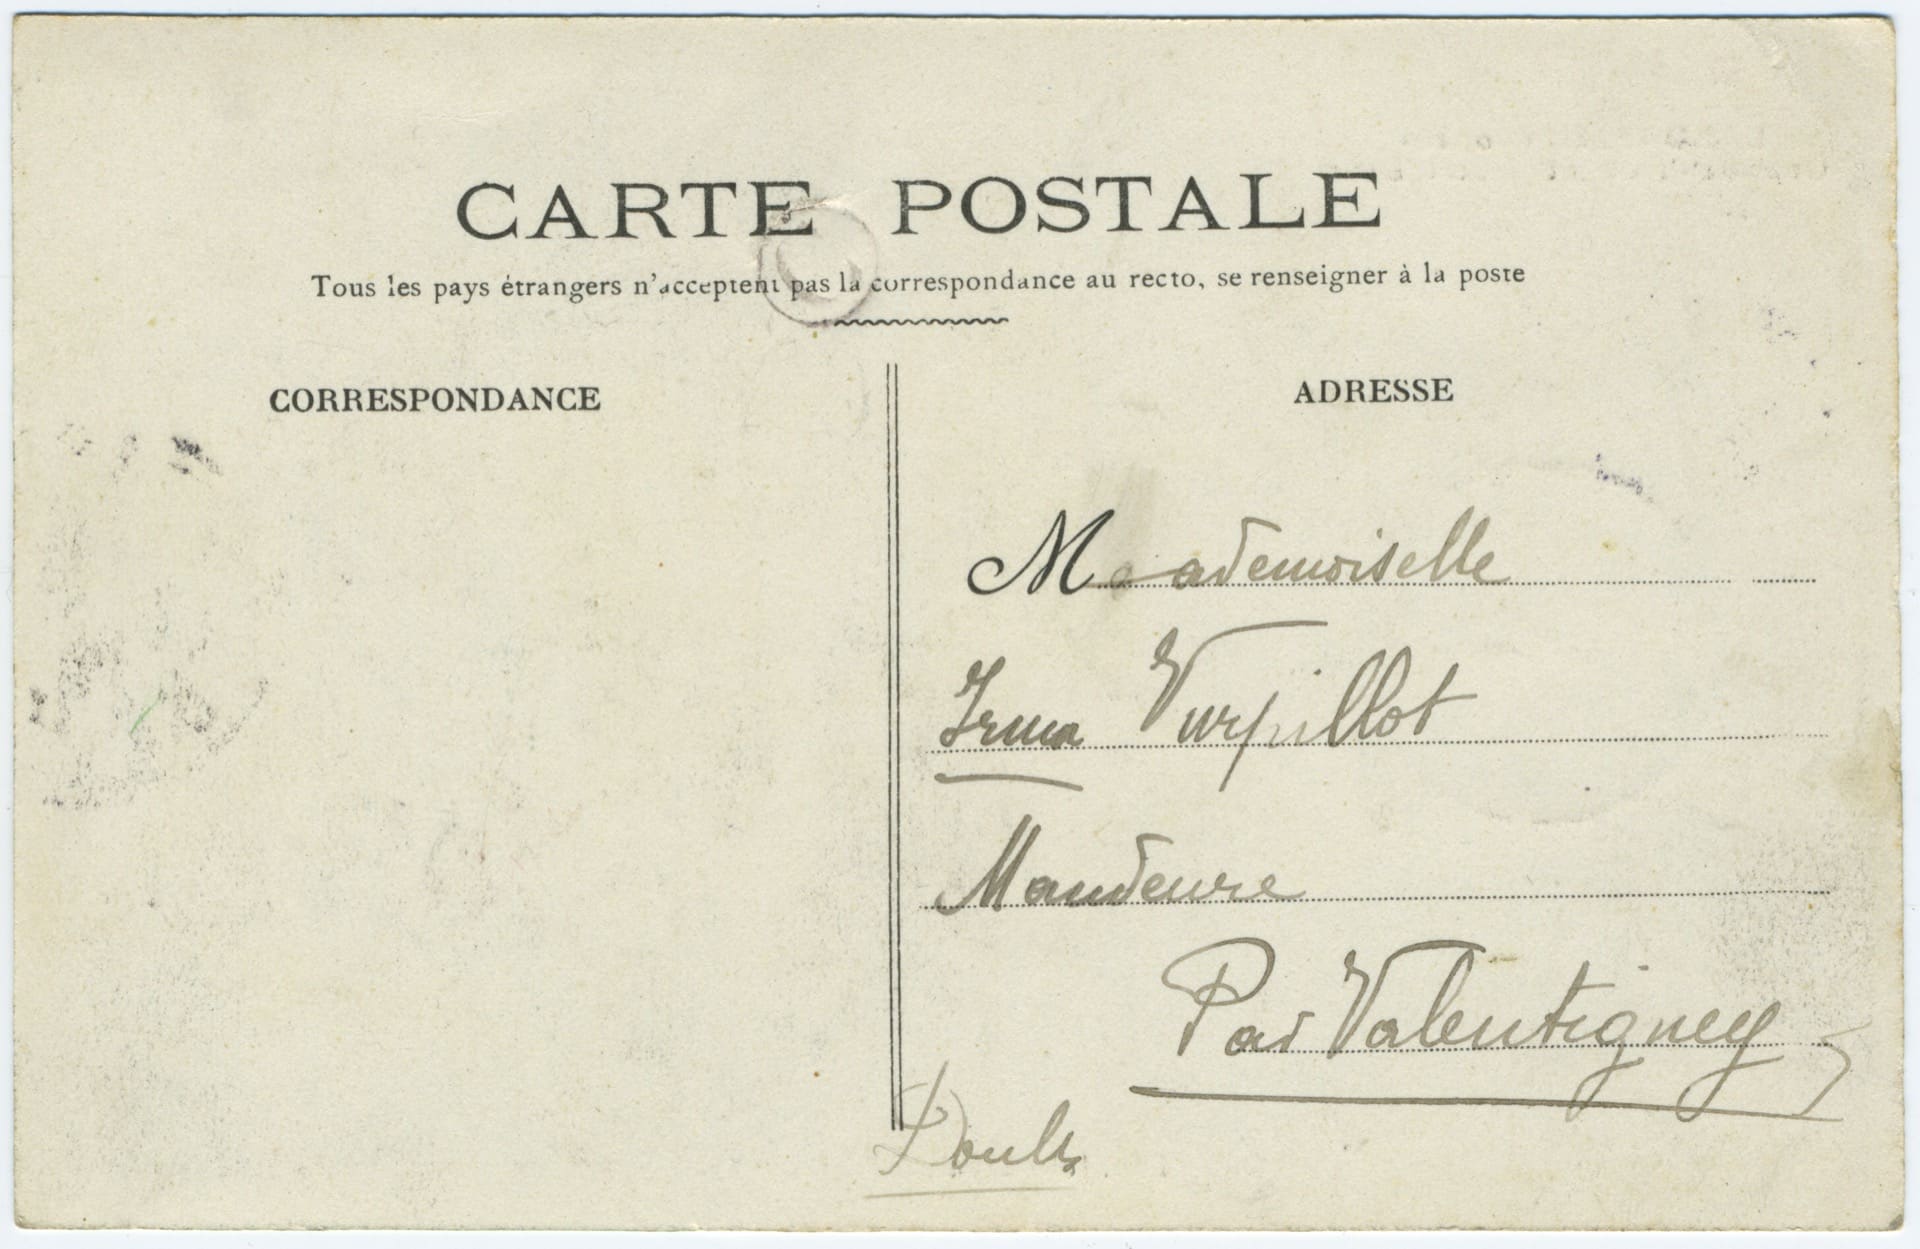 CARTE POSTALE
Tous les pays étrangers n'acceptent pas la correspondance au recto, se renseigner à la poste
CORRESPONDANCE
ADRESSE
Mademoiselle
Irma Vurpillot
Mandeure
Par Valentigney
Doubs